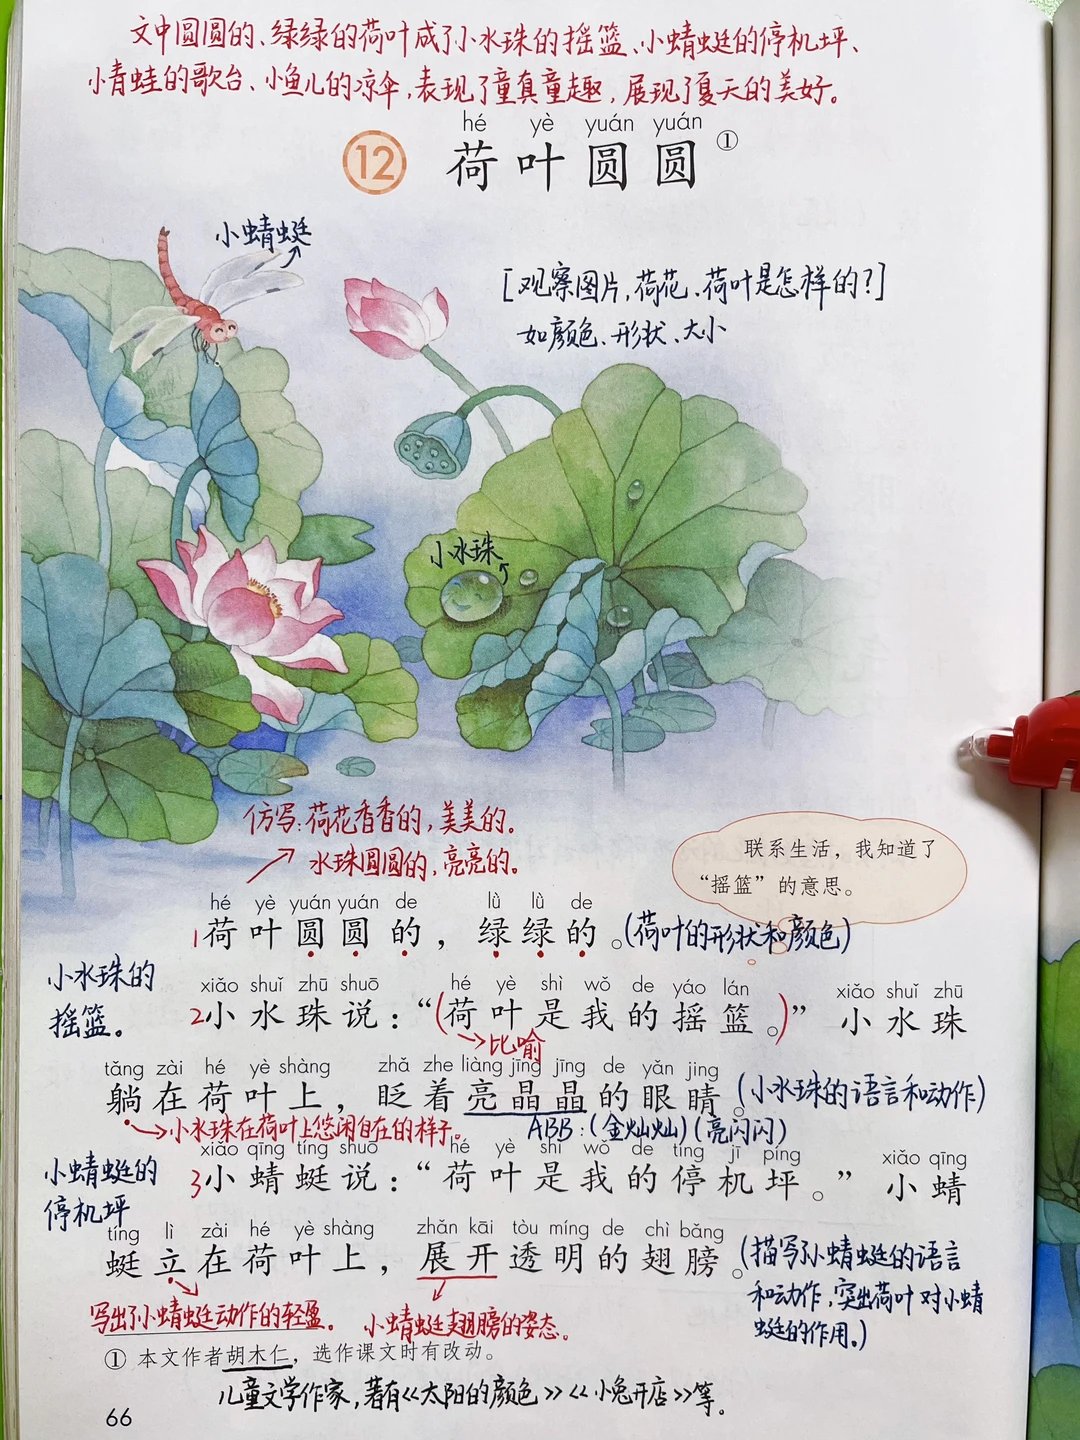 文中圆圆的、绿绿的荷叶成了小水珠的摇篮、小蜻蜓的停机坪、
小青蛙的歌台、小鱼儿的凉伞,表现了童真童趣,展现了夏天的美好。
hé yè yuán yuán
12 荷叶圆圆①
小蜻蜓
[观察图片,荷花、荷叶是怎样的?]
如颜色、形状、大小
小水珠
仿写:荷花香香的,美美的。
水珠圆圆的,亮亮的。
联系生活，我知道了
“摇篮”的意思。
hé yè yuán yuán de lǜ lǜ de
1荷叶圆圆的，绿绿的。(荷叶的形状和颜色)
小水珠的
摇篮。
xiǎo shuǐ zhū shuō hé yè shì wǒ de yáo lán xiǎo shuǐ zhū
2小水珠说：“(荷叶是我的摇篮。)”小水珠
比喻
tǎng zài hé yè shàng zhǎ zhe liàng jīng jīng de yǎn jing
躺在荷叶上，眨着亮晶晶的眼睛。(小水珠的语言和动作)
小水珠在荷叶上悠闲自在的样子。
ABB:(金灿灿)(亮闪闪)
小蜻蜓的
停机坪
xiǎo qīng tíng shuō hé yè shì wǒ de tíng jī píng xiǎo qīng
3小蜻蜓说：“荷叶是我的停机坪。”小蜻
tíng lì zài hé yè shàng zhǎn kāi tòu míng de chì bǎng
蜓立在荷叶上，展开透明的翅膀。(描写小蜻蜓的语言
和动作,突出荷叶对小蜻
蜓的作用。)
写出了小蜻蜓动作的轻盈。
小蜻蜓翅膀的姿态。
① 本文作者胡木仁，选作课文时有改动。
儿童文学作家,著有《太阳的颜色》《小兔开店》等。
66